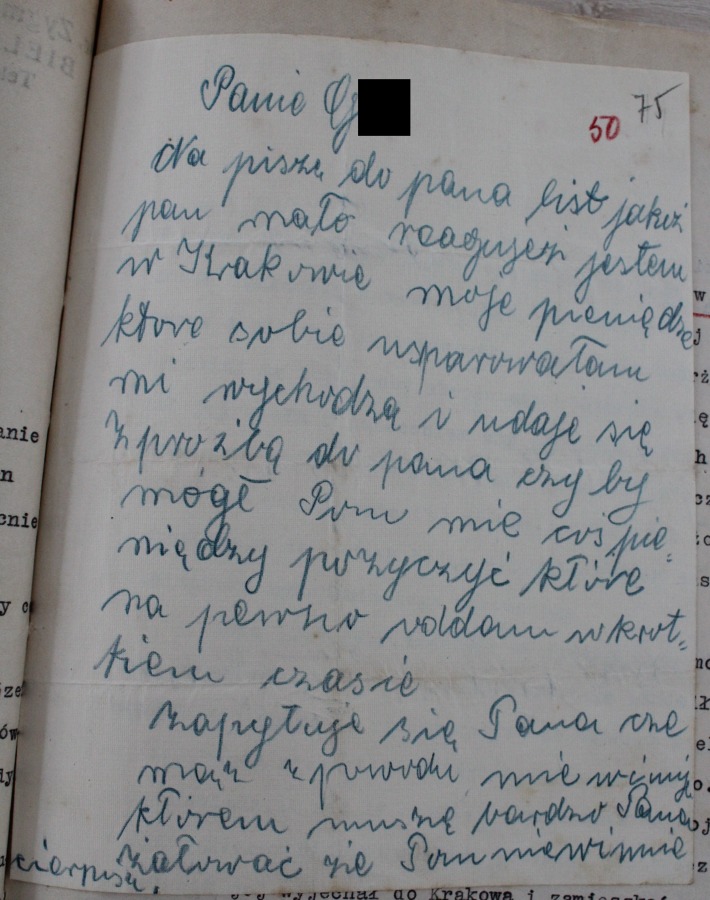 Panie G
50 75
Na piszę do pana list jakiż
pan mało reagujesz jestem
w Krakowie moje pieniądze
które sobie usparowałam
mi wychodzą i udaje się
z proźbą do pana czy by
mógł Pan mie coś pie-
niędzy pożyczyć które
na pewno oddam w krót-
kiem czasie
Zapytuje się Pana cze
mąż z powodu mie winnij
którem muszę bardzo Pana
żałować że Pan niewinnie
cierpisz.
anie
n
cnie
jej wyjechał do Krakowa i zamieszkał